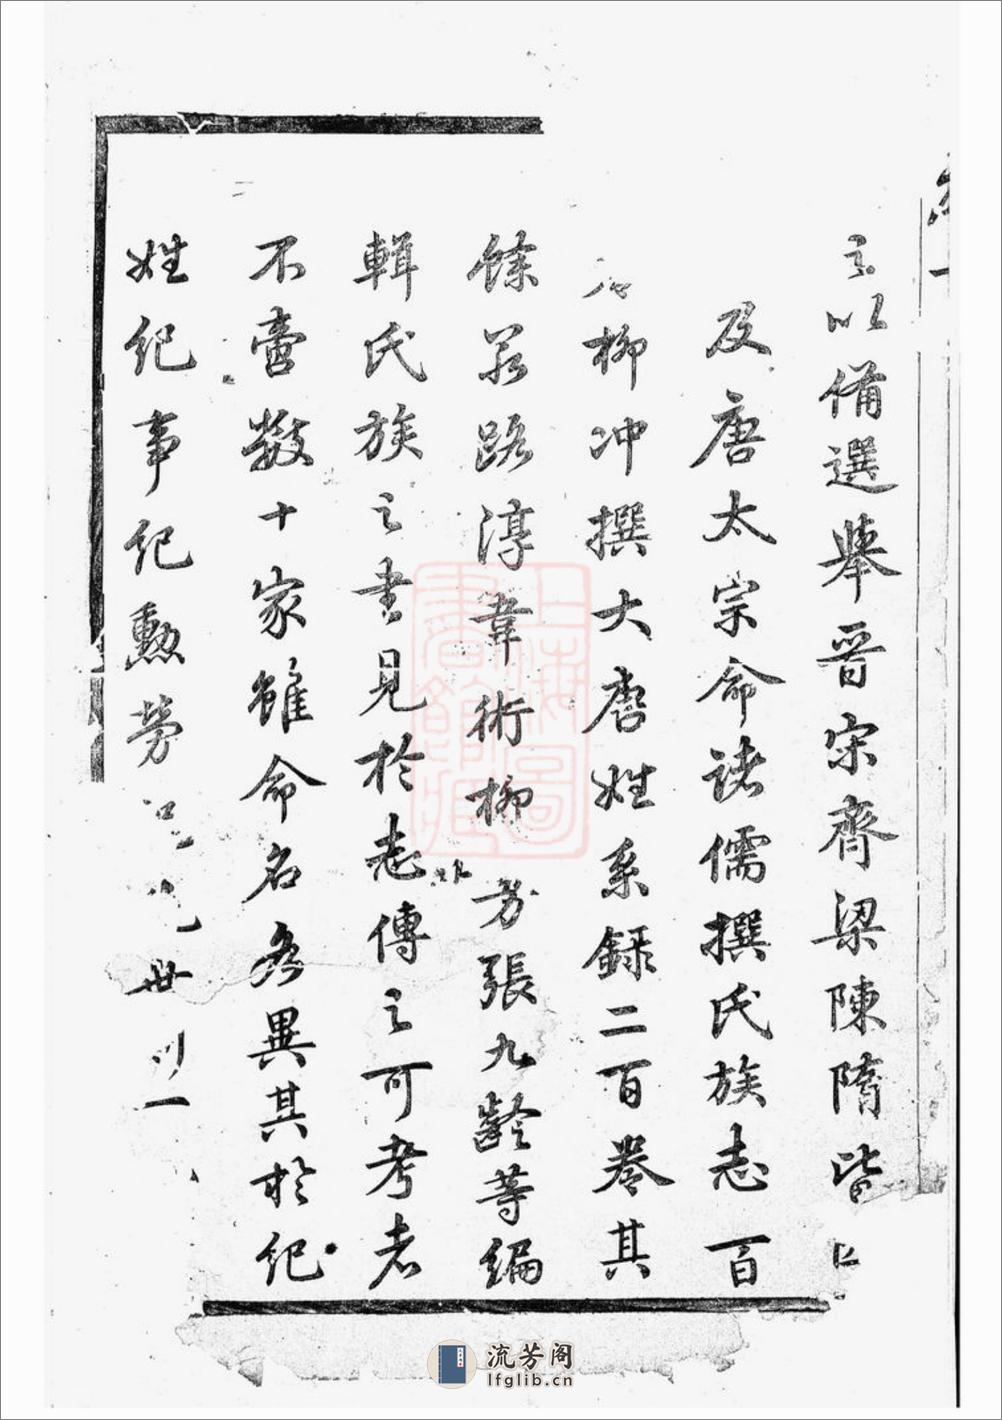 以備選舉晉宋齊梁陳隋皆
及唐太宗命諸儒撰氏族志百
柳冲撰大唐姓系錄二百卷其
餘若路淳韋術柳芳張九齡等編
輯氏族之書見於志傳之可考者
不啻數十家雖命名各異其於紀
姓紀事紀勲勞世
上海圖書館藏
流芳阁
lfglib.cn